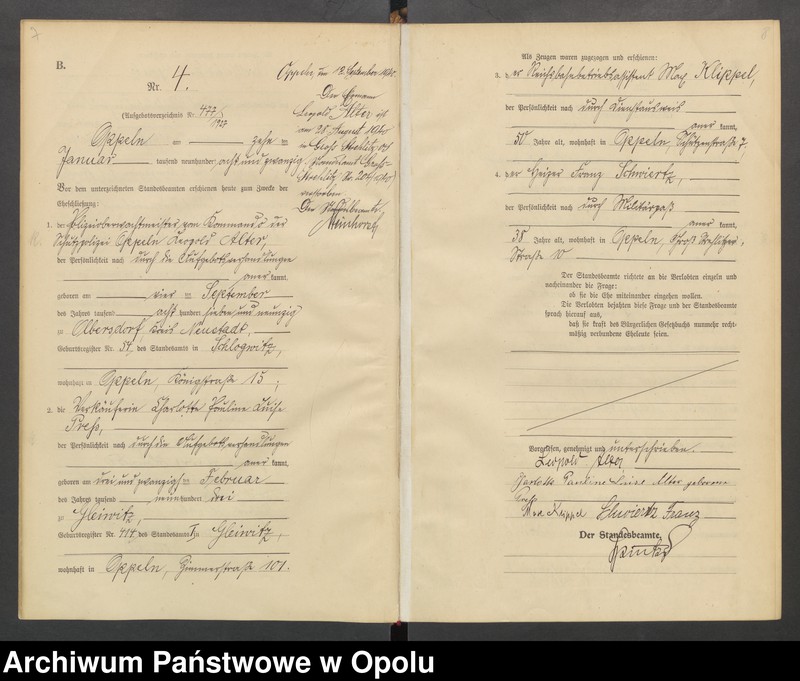 B.
Nr. 4.
(Aufgebotsverzeichnis Nr. 477/
1927
Oppeln am zehn ten
Januar tausend neunhundert acht und zwanzig
Vor dem unterzeichneten Standesbeamten erschienen heute zum Zwecke der
Eheschließung:
1. der Polizeioberwachtmeister vom Kommando der
Schutzpolizei Oppeln Leopold Alter,
der Persönlichkeit nach durch die Aufgebotsverhandlungen
aner kannt,
geboren am vier ten September
des Jahres tausend acht hundert sieben und neunzig
zu Olbersdorf, Kreis Neustadt,
Geburtsregister Nr. 57, des Standesamts in Schlogwitz,
wohnhaft in Oppeln, Königstraße 15;
2. die Verkäuferin Charlotte Pauline Luise
Preß,
der Persönlichkeit nach durch die Aufgebotsverhandlungen
aner kannt,
geboren am drei und zwanzigsten Februar
des Jahres tausend neunhundert drei
zu Gleiwitz,
Geburtsregister Nr. 414, des Standesamts I zu Gleiwitz,
wohnhaft in Oppeln, Zimmerstraße 101.
Oppeln, am September 1940.
Der Ehemann
Leopold Alter ist
am 28. August 1940
in Groß Strehlitz O/S
Standesamt Groß-
Strehlitz Nr. 1940)
verstorben
Der Standesbeamte
Als Zeugen waren zugezogen und erschienen:
3. der Reichsbahnbetriebsassistent Max Klippel,
der Persönlichkeit nach durch Dienstausweis
aner kannt,
50 Jahre alt, wohnhaft in Oppeln, Schützenstraße 7,
4. der Heizer Franz Schwiertz,
der Persönlichkeit nach durch Militärpaß
aner kannt,
38 Jahre alt, wohnhaft in Oppeln, Groß Strehlitzer
Straße
Der Standesbeamte richtete an die Verlobten einzeln und
nacheinander die Frage:
ob sie die Ehe miteinander eingehen wollen.
Die Verlobten bejahten diese Frage und der Standesbeamte
sprach hierauf aus,
daß sie kraft des Bürgerlichen Gesetzbuchs nunmehr recht-
mäßig verbundene Eheleute seien.
Vorgelesen, genehmigt und unterschrieben.
Leopold Alter
Charlotte Pauline Luise Alter geborene
Preß
Max Klippel Schwiertz Franz
Der Standesbeamte.
Archiwum Państwowe w Opolu